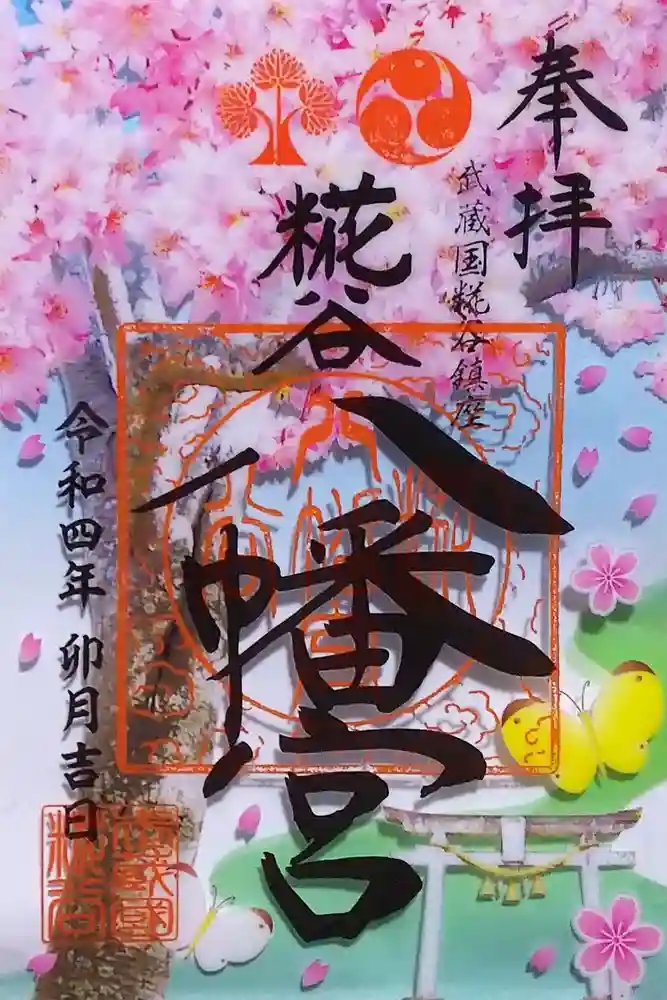 奉拝
武蔵国糀谷鎮座
糀谷
八幡宮
令和四年 卯月吉日
武蔵國
糀谷